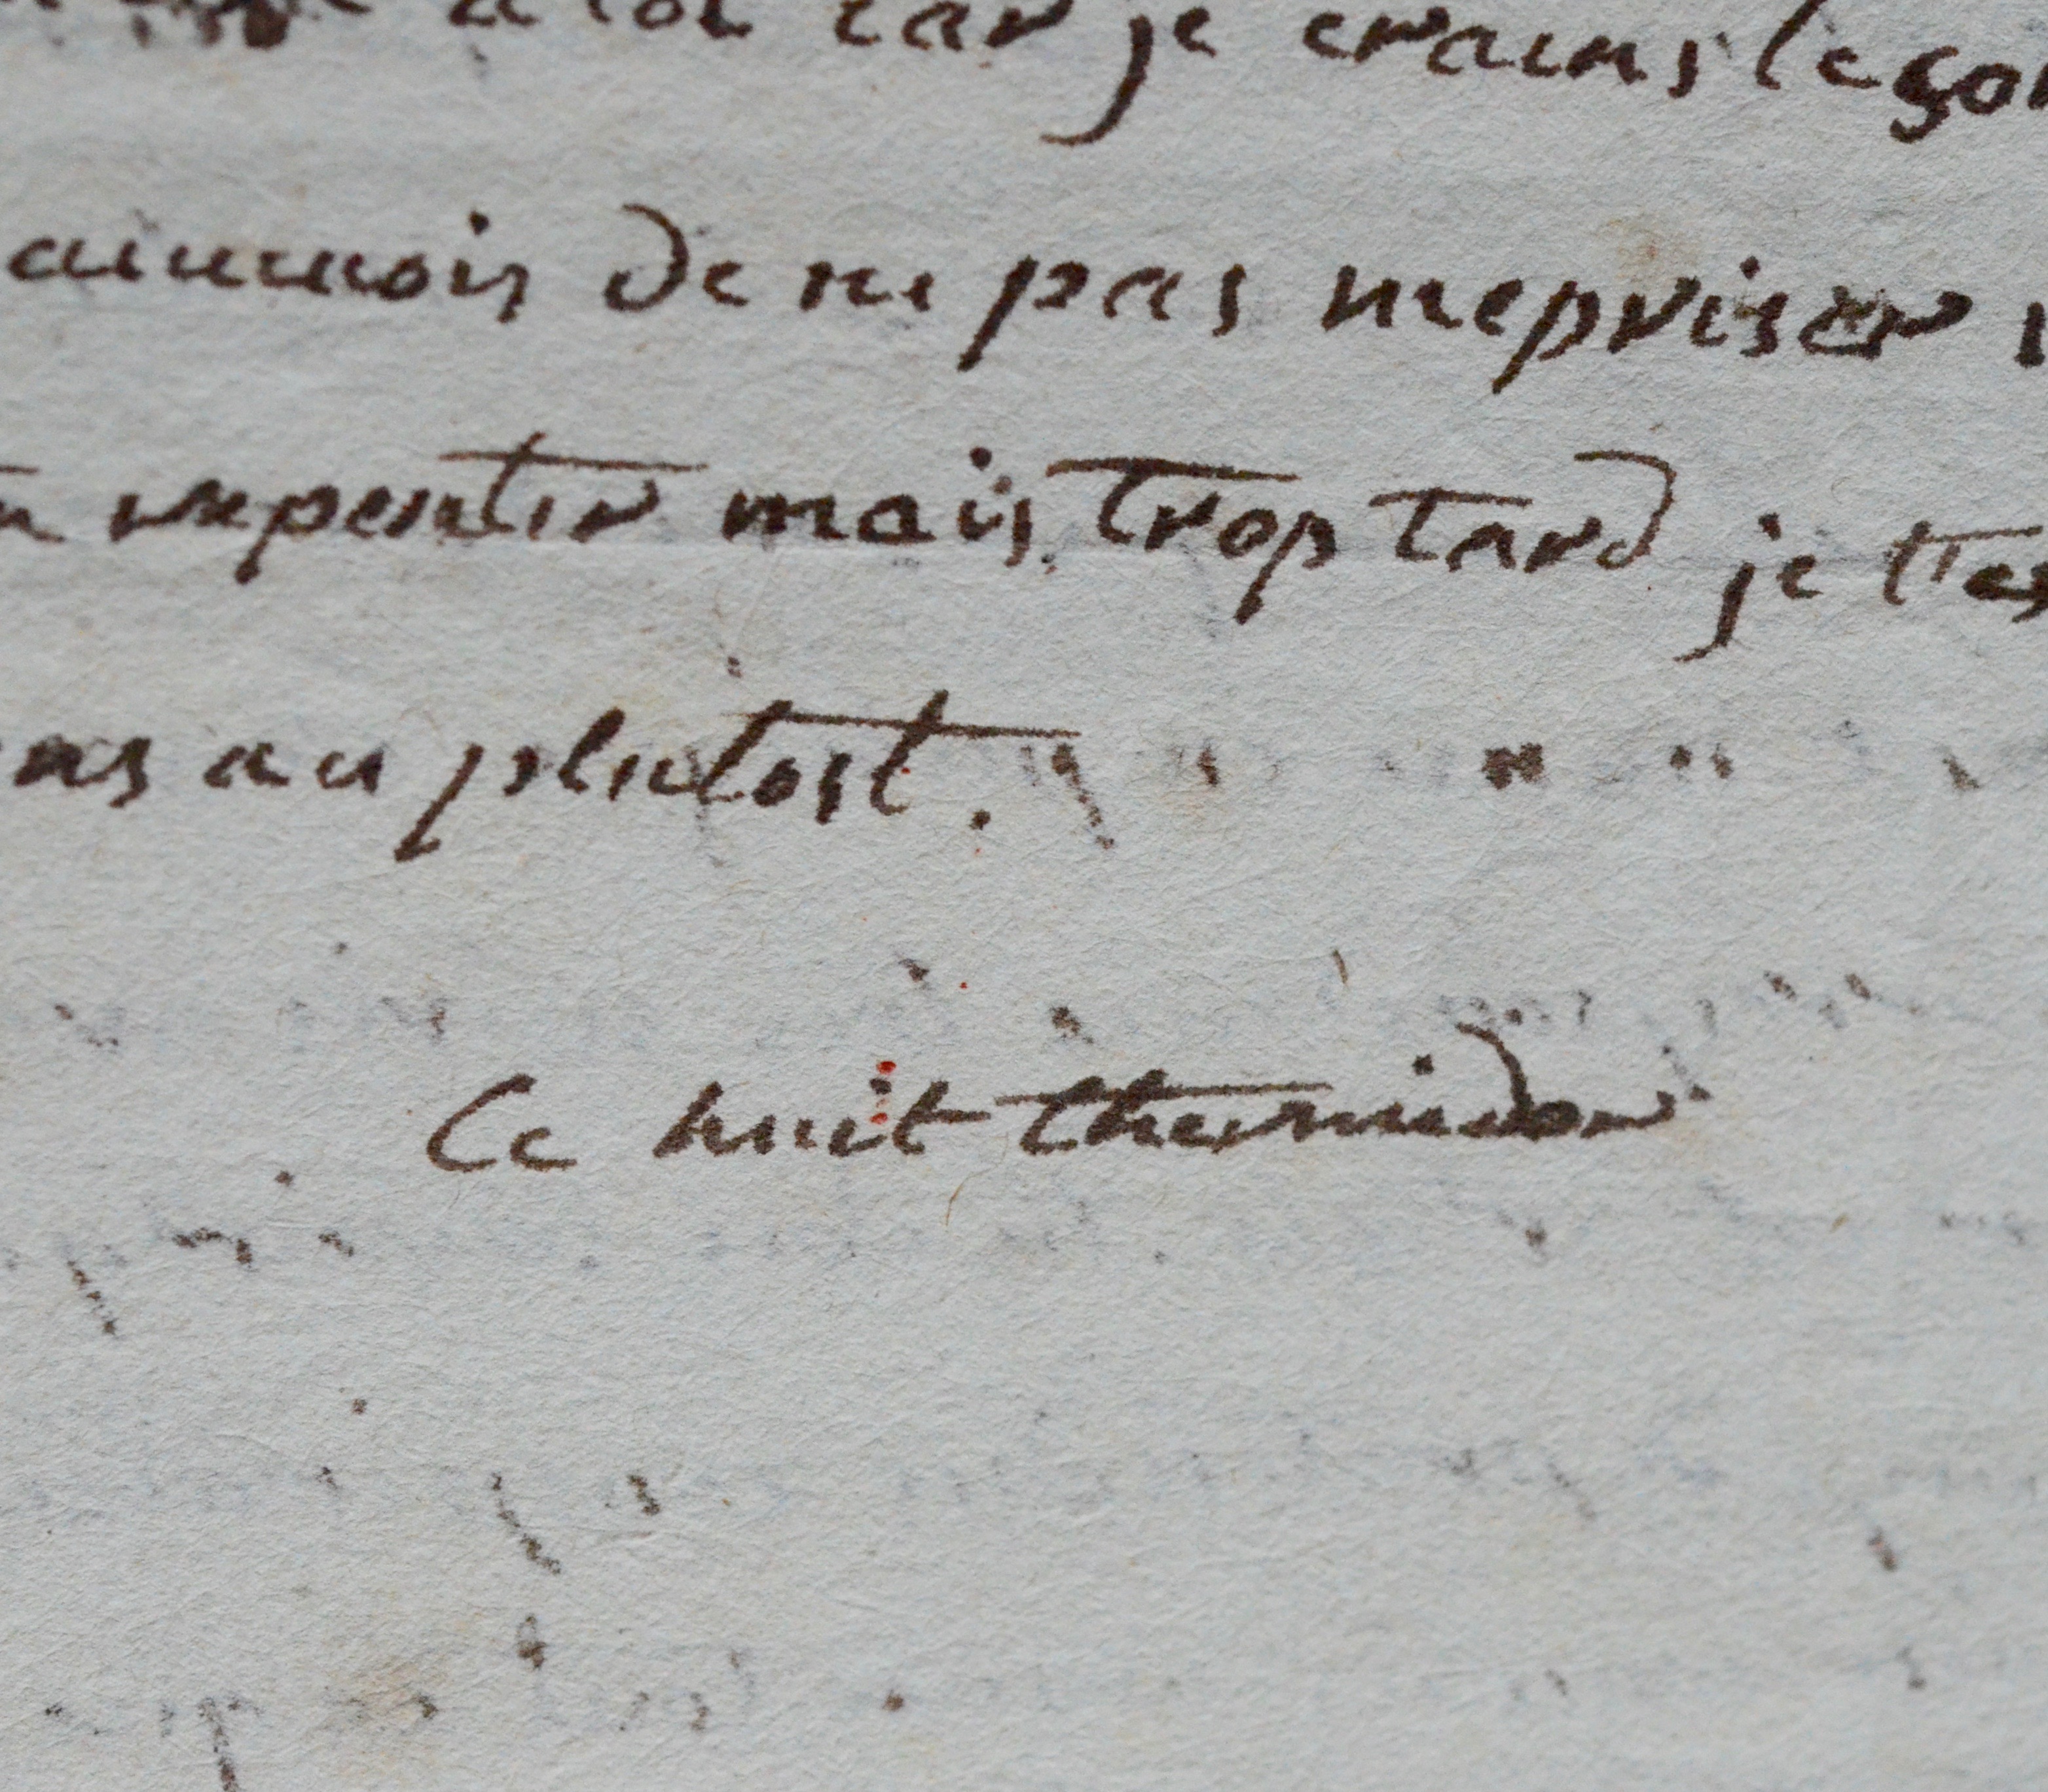 a toi car je crains le ço
aumois de ne pas mepriser
repentir mais trop tard je t'es
ns au plutost.
Ce huit thermidor